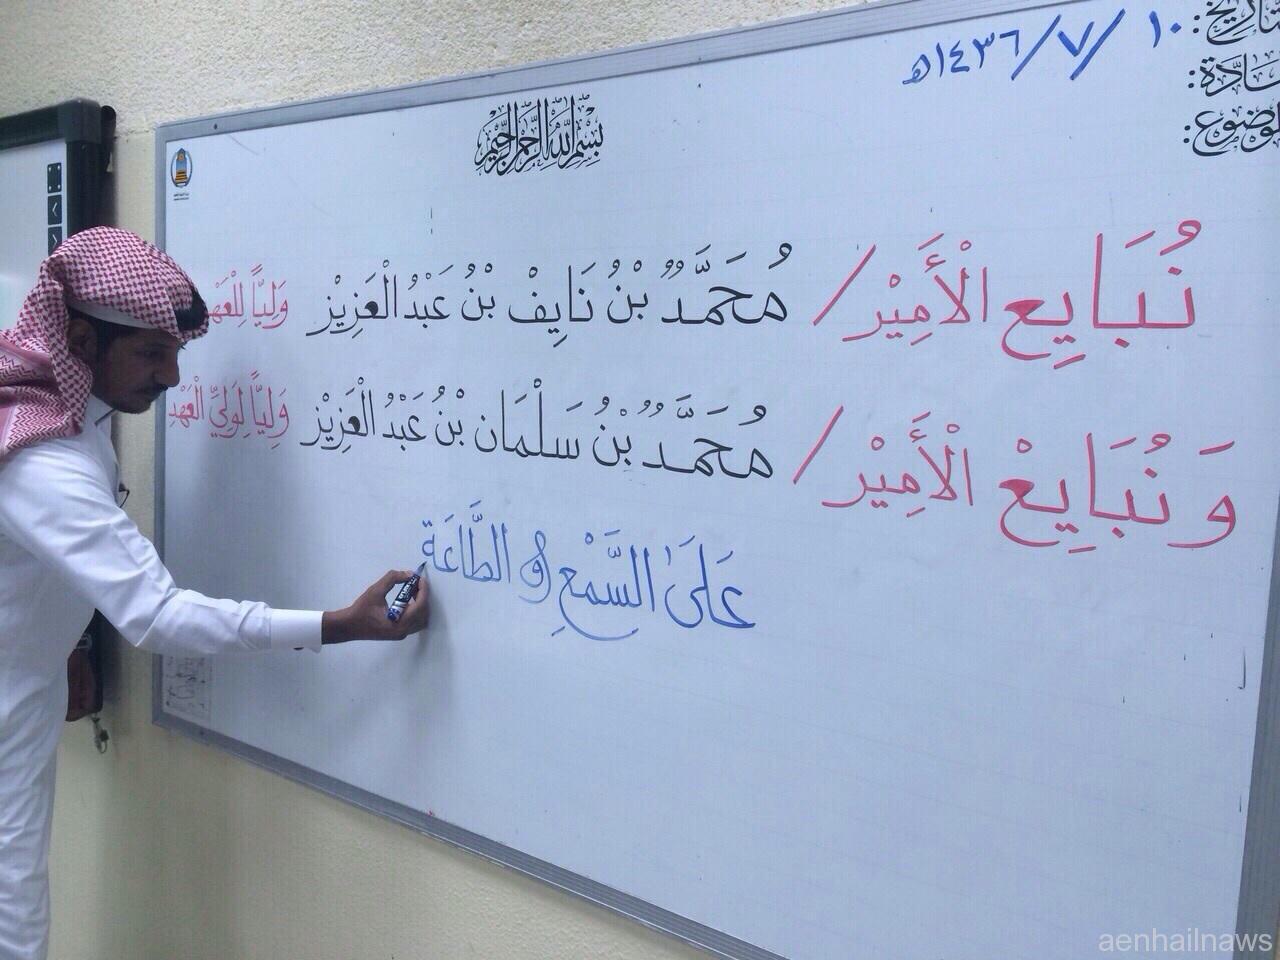 التاريخ: ١٠ / ٧ / ١٤٣٦هـ
المادّة:
الموضوع:
بسم الله الرحمن الرحيم
نُبَايِع الْأَمِيْر / مُحَمَّدُ بْنُ نَايِفْ بْنُ عَبْدُ الْعَزِيْز وَلِيًّا لِلْعَهْد
وَنُبَايِعْ الْأَمِيْر / مُحَمَّدُ بْنُ سَلْمَان بْنُ عَبْدُ الْعَزِيْز وَلِيًّا لِوَلِيِّ الْعَهْدِ
عَلَىٰ السَّمْعِ و الطَّاعَة
aenhailnaws